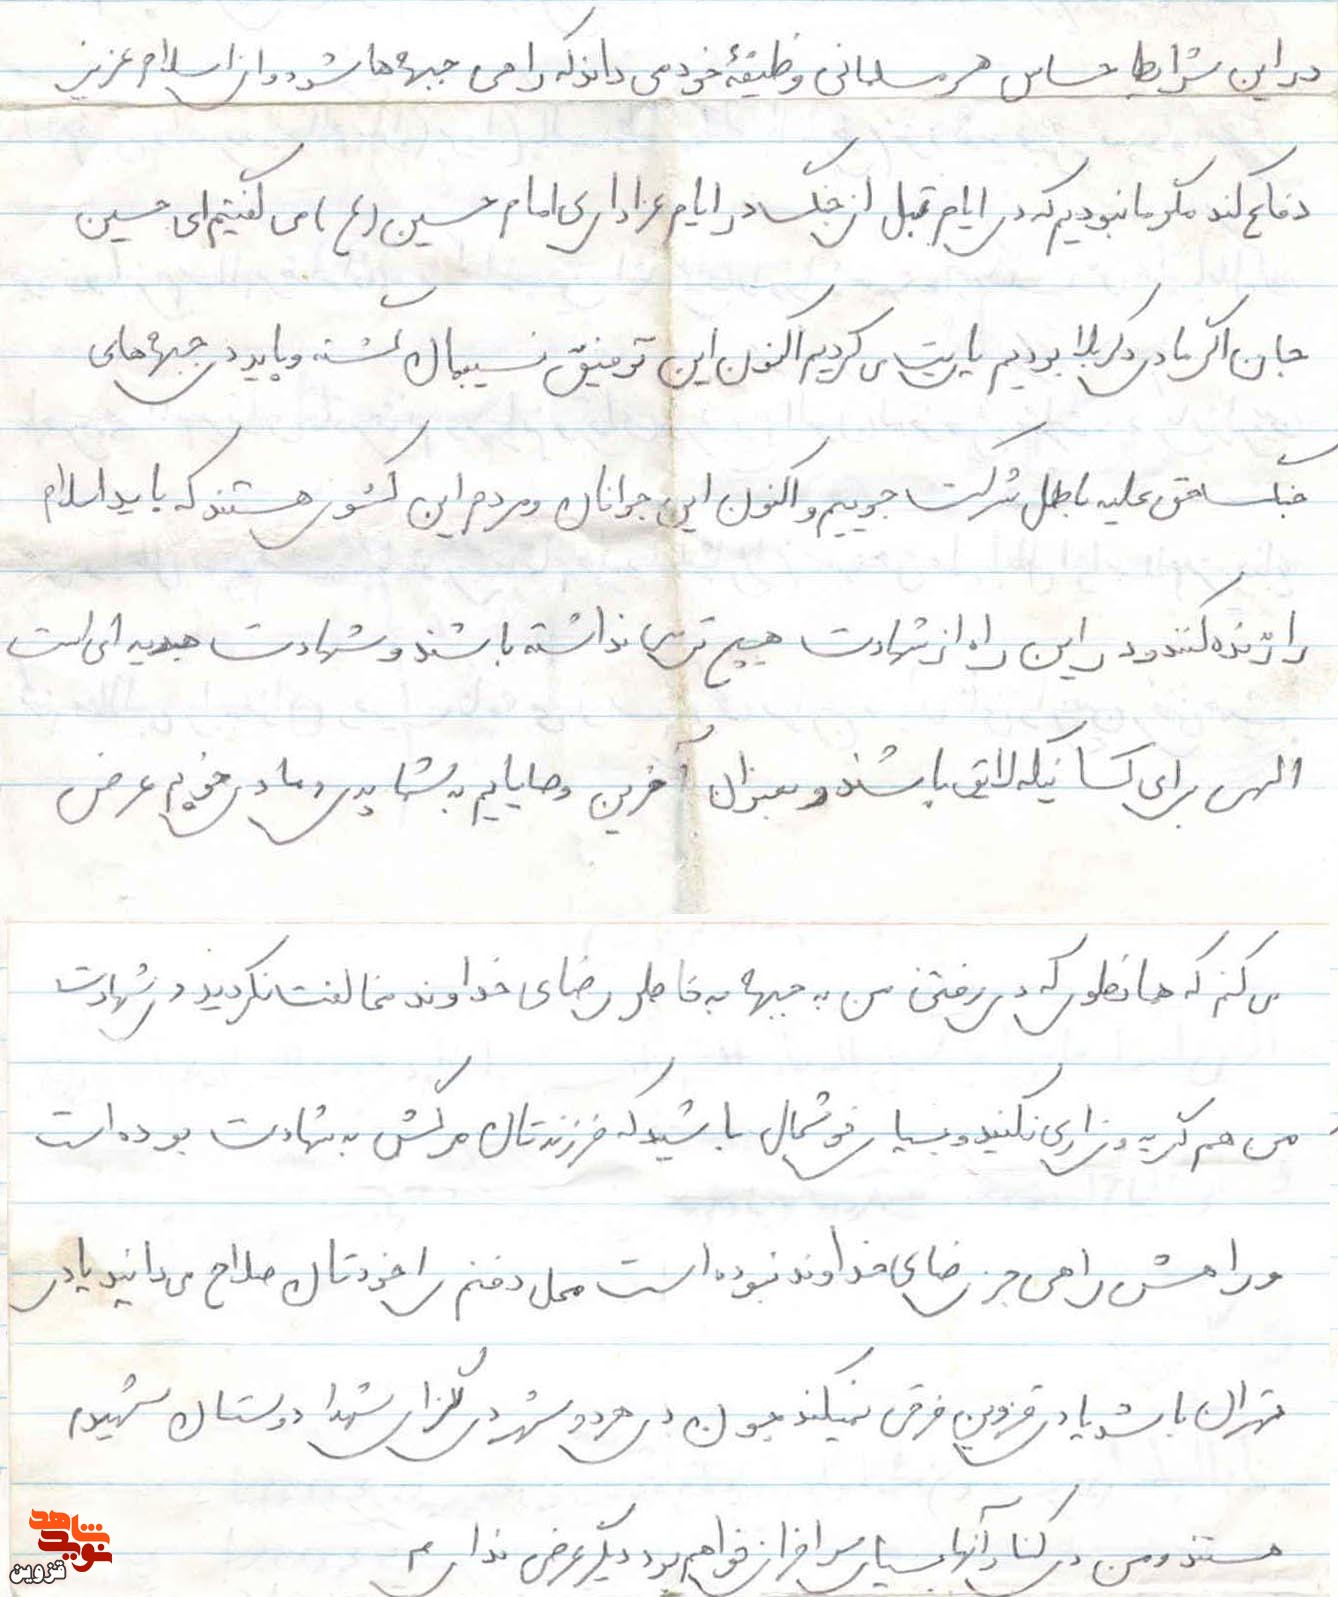 در این شرایط حساس هر مسلمانی وظیفهٔ خود می داند که راهی جبهه ها شود و از اسلام عزیز
دفاع کند مگر ما نبودیم که در ایام قبل از جنگ در ایام عزاداری امام حسین (ع) می گفتیم ای حسین
جان اگر ما در کربلا بودیم یاریت می کردیم اکنون این توفیق نسیبمان گشته و باید در جبهه های
جنگ حق علیه باطل شرکت جوییم و اکنون این جوانان و مردم این کشور هستند که باید اسلام
را زنده کنند و در این راه از شهادت هیچ ترسی نداشته باشند و شهادت هدیه ای است
الهی برای کسانیکه لایق باشند و بعنوان آخرین وصایایم به شما پدر و مادر خوبم عرض
می کنم که همانطور که در رفتن من به جبهه به خاطر رضای خداوند مخالفت نکردید در شهادت
من هم گریه و زاری نکنید و بسیار خوشحال باشید که فرزندتان مرگش به شهادت بوده است
و راهش راهی جز رضای خداوند نبوده است محل دفنم را خودتان صلاح می دانید یا در
تهران باشد یا در قزوین فرقی نمیکند چون در هر دو شهر در گلزار شهدا دوستان شهیدم
هستند و من در کنار آنها بسیار سرافراز خواهم بود دیگر عرضی ندارم
نوید شاهد
قزوین